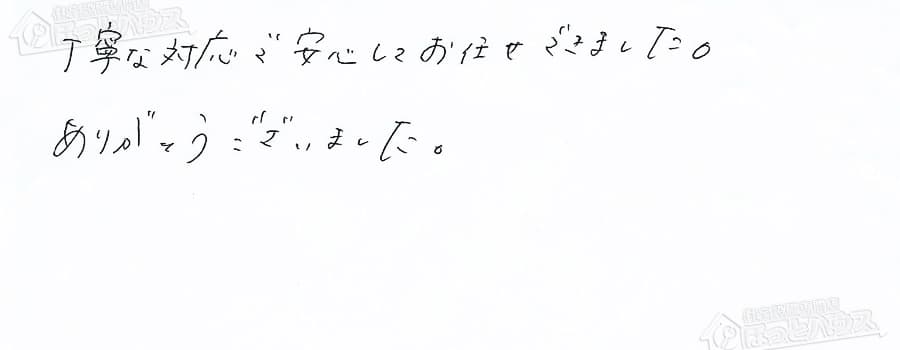 丁寧な対応で安心してお任せできました。
ありがとうございました。
ほっとハウス
ほっとハウス